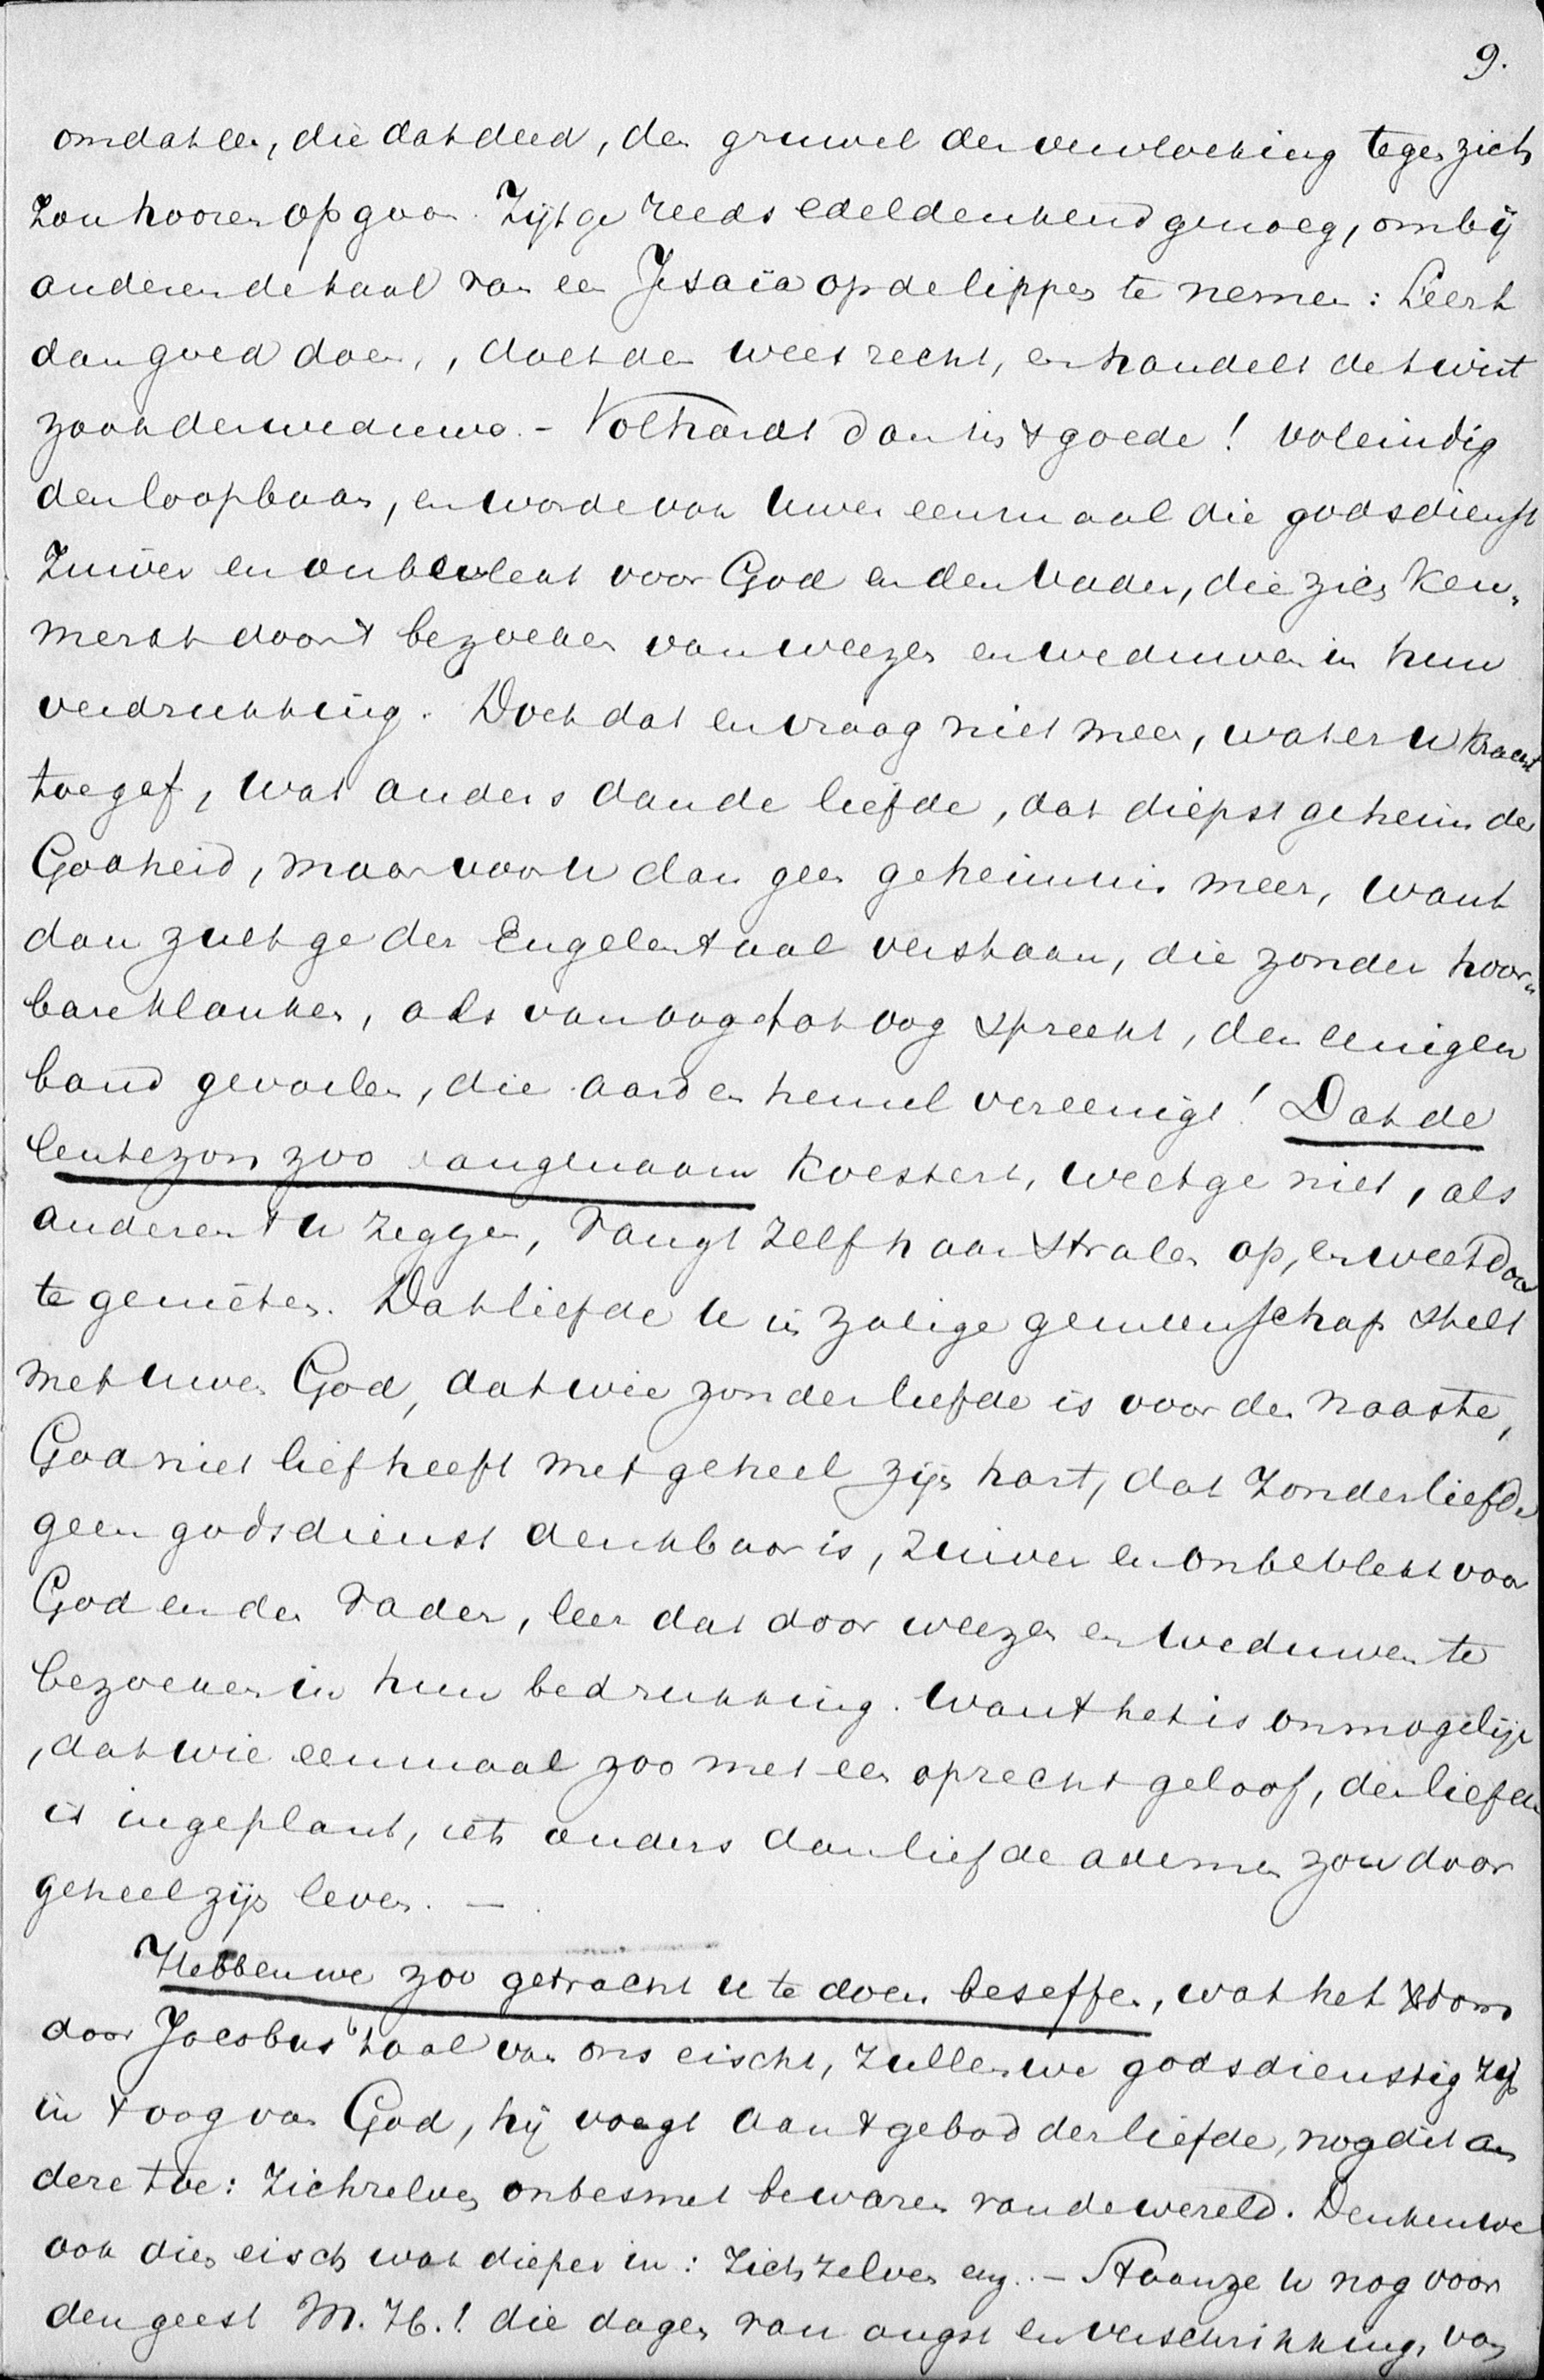 9.
omdat een, die dat deed, den gruwel der vervloeking tegen zich
zou hooren opgaan. Zijt ge reeds edeldenkend genoeg, om bij
anderen de taal van een Jesaïa op de lippen te nemen: Leert
dan goed doen, , doet den wees recht, en handelt de twist
zaak der weduwe. - Volhardt dan in 't goede! voleindig
den loopbaan, en worde ook uwer eenmaal die godsdienst
Zuiver en onbevlekt voor God en den Vader, die zich ken-
merkt door 't bezoeken van weezen en weduwen in hun
verdrukking. Doch dat en vraag niet meer, wat er u kracht
toe gaf, wat anders dan de liefde, dat diepst geheim der
Godheid, maar voor u dan geen geheimnis meer, want
dan zult ge der Engelen taal verstaan, die zonder hoor-
bare klanken, als van oog tot oog spreekt, den eenigen
band gevoelen, die aard en hemel vereenigt! Dat de
lentezon zoo aangenaam koestert, weet ge niet, als
anderen 't u zeggen, vangt zelf haar stralen op, en weet door
te genieten. Dat liefde u in zalige gemeenschap stelt
met uwen God, dat wie zonder liefde is voor den naaste,
God niet lief heeft met geheel zijn hart, dat zonder liefde
geen godsdienst denkbaar is, zuiver en onbevlekt voor
God en den Vader, leer dat door weezen en weduwen te
bezoeken in hun bedrukking. Want het is onmogelijk
, dat wie eenmaal zoo met een oprecht geloof, de liefde
is ingeplant, iets anders dan liefde ademen zou door
geheel zijn leven. -
Hebben we zoo getracht u te doen beseffen, wat het
door Jacobus' taal van ons eischt, zullen we godsdienstig zijn
in 't oog van God, hij voegt aan 't gebod der liefde, nog dit an
dere toe: Zichzelven onbesmet bewaren van de wereld. Denken we
ook dien eisch wat dieper in: Zich zelven enz. - Staan ze u nog voor
den geest M. H.! die dagen van angst en verschrikking, van